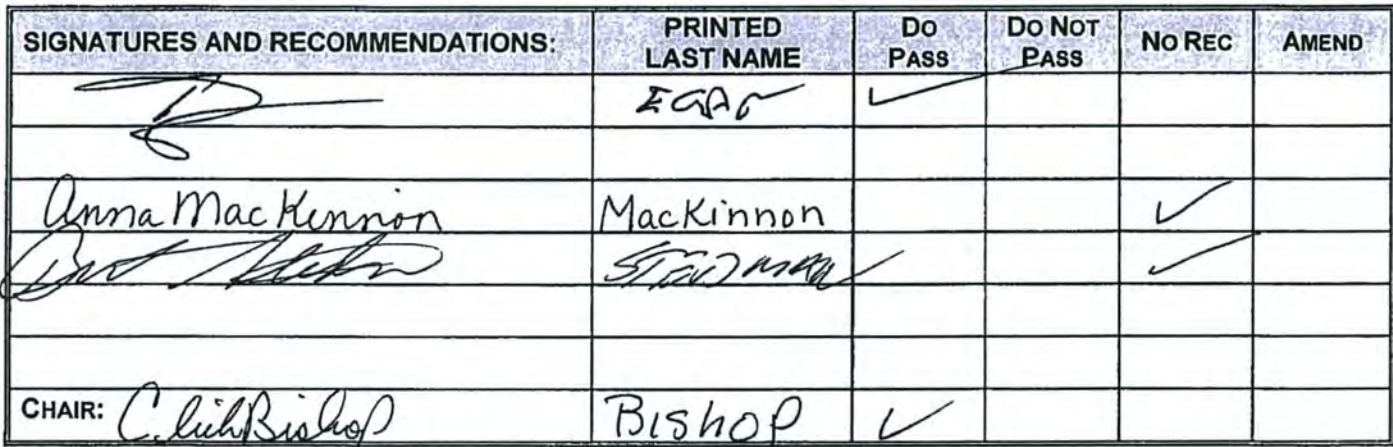 SIGNATURES AND RECOMMENDATIONS: PRINTED LAST NAME DO PASS DO NOT PASS NO REC AMEND
EGAN ✓
Anna MacKinnon MacKinnon ✓
Bert Stedman STEDMAN ✓
CHAIR: Bishop BISHOP ✓